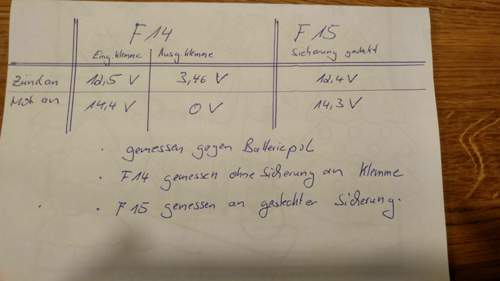 F14 F15
Eing. klemme Ausg. klemme Sicherung gesteckt
Zünd an 12,5 V 3,46 V 12,4V
Mot an 14,4 V 0V 14,3V
· gemessen gegen Batteriepol
· F14 gemessen ohne Sicherung an Klemme
· F15 gemessen an gesteckter Sicherung.